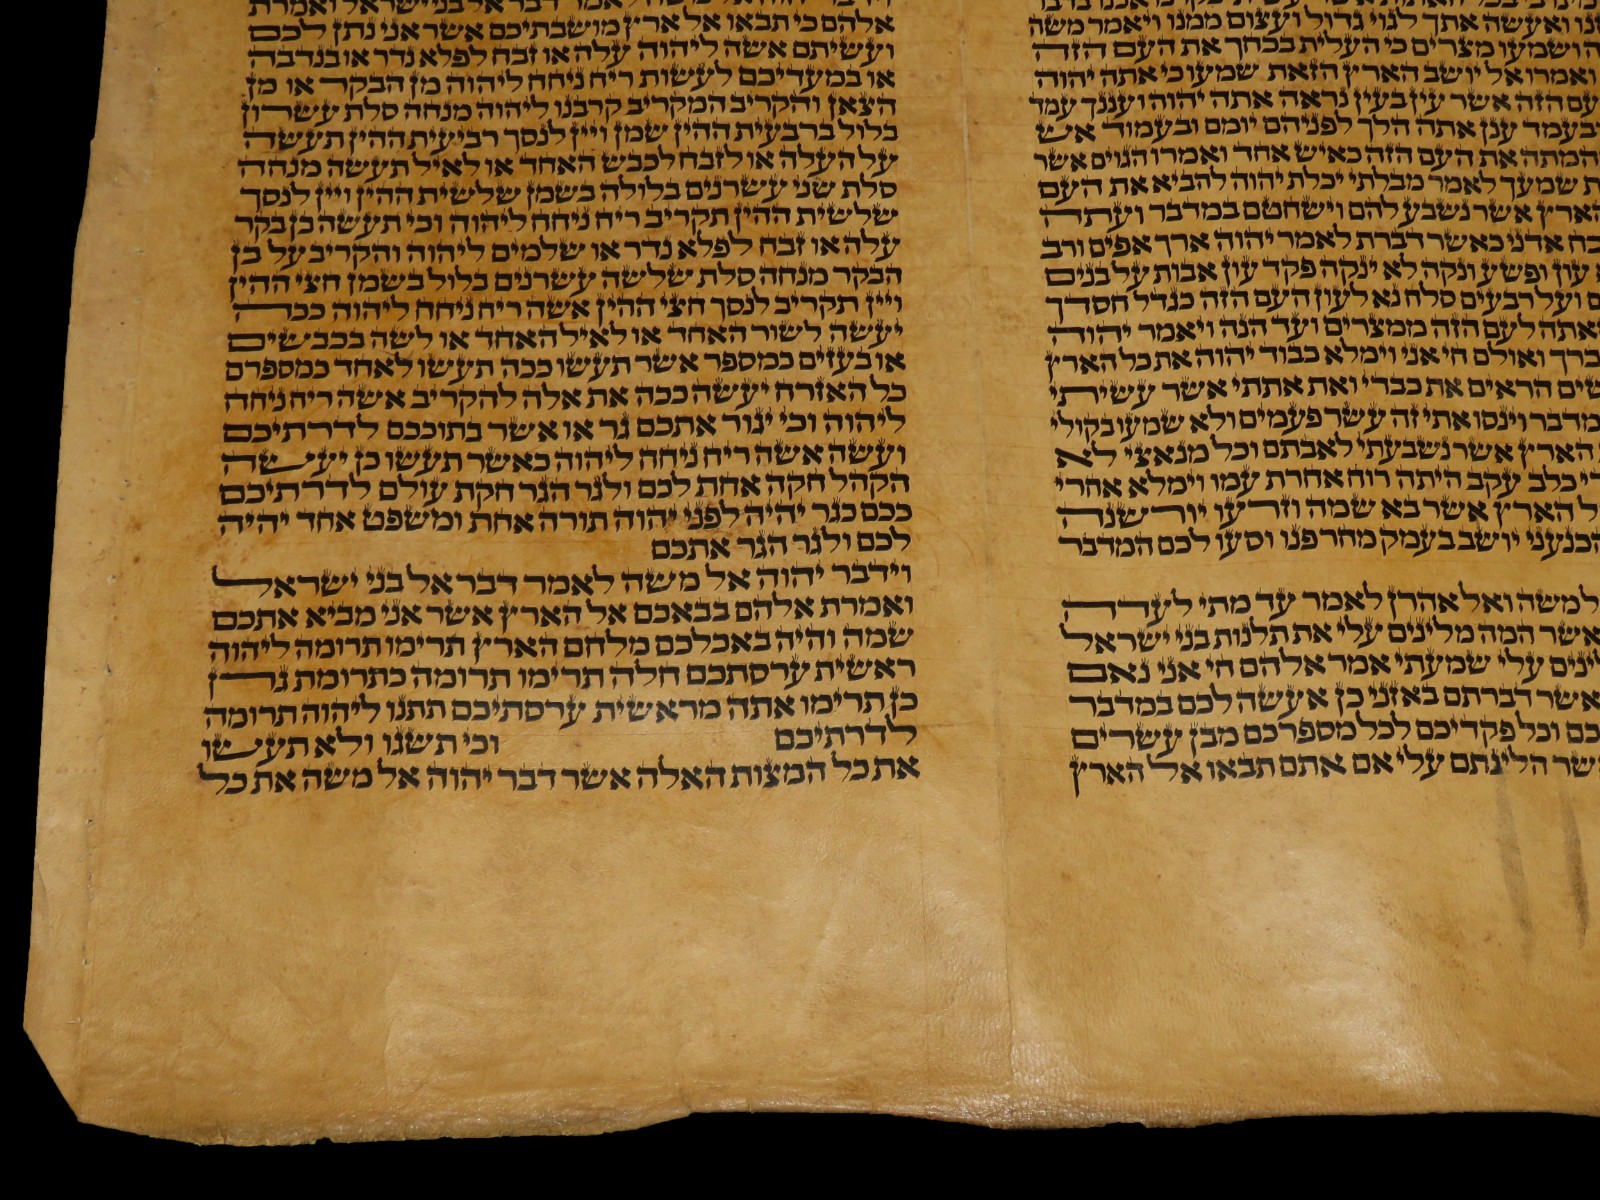 נו ואעשה אתך לגוי גדול ועצום ממנו ויאמר משה
ה ושמעו מצרים כי העלית בכחך את העם הזה
ואמרו אל יושב הארץ הזאת שמעו כי אתה יהוה
עם הזה אשר עין בעין נראה אתה יהוה ועננך עמד
בעמד ענן אתה הלך לפניהם יומם ובעמוד אש
המתה את העם הזה כאיש אחד ואמרו הגוים אשר
ת שמעך לאמר מבלתי יכלת יהוה להביא את העם
הארץ אשר נשבע להם וישחטם במדבר ועתה
כח אדני כאשר דברת לאמר יהוה ארך אפים ורב
עון ופשע ונקה לא ינקה פקד עון אבות על בנים
ם ועל רבעים סלח נא לעון העם הזה כגדל חסדך
אתה לעם הזה ממצרים ועד הנה ויאמר יהוה
ברך ואולם חי אני וימלא כבוד יהוה את כל הארץ
שים הראים את כבדי ואת אתתי אשר עשיתי
מדבר וינסו אתי זה עשר פעמים ולא שמעו בקולי
הארץ אשר נשבעתי לאבתם וכל מנאצי לא
די כלב עקב היתה רוח אחרת עמו וימלא אחרי
ל הארץ אשר בא שמה וזרעו יורשנה
הכנעני יושב בעמק מחר פנו וסעו לכם המדבר
ל משה ואל אהרן לאמר עד מתי לעדה
אשר המה מלינים עלי את תלנות בני ישראל
לינים עלי שמעתי אמר אלהם חי אני נאם
אשר דברתם באזני כן אעשה לכם במדבר
כם וכל פקדיכם לכל מספרכם מבן עשרים
שר הלינתם עלי אם אתם תבאו אל הארץ
וידבר יהוה אל משה לאמר דבר אל בני ישראל ואמרת
אלהם כי תבאו אל ארץ מושבתיכם אשר אני נתן לכם
ועשיתם אשה ליהוה עלה או זבח לפלא נדר או בנדבה
או במעדיכם לעשות ריח ניחח ליהוה מן הבקר או מן
הצאן והקריב המקריב קרבנו ליהוה מנחה סלת עשרון
בלול ברבעית ההין שמן ויין לנסך רביעית ההין תעשה
על העלה או לזבח לכבש האחד או לאיל תעשה מנחה
סלת שני עשרנים בלולה בשמן שלשית ההין ויין לנסך
שלשית ההין תקריב ריח ניחח ליהוה וכי תעשה בן בקר
עלה או זבח לפלא נדר או שלמים ליהוה והקריב על בן
הבקר מנחה סלת שלשה עשרנים בלול בשמן חצי ההין
ויין תקריב לנסך חצי ההין אשה ריח ניחח ליהוה ככה
יעשה לשור האחד או לאיל האחד או לשה בכבשים
או בעזים כמספר אשר תעשו ככה תעשו לאחד כמספרם
כל האזרח יעשה ככה את אלה להקריב אשה ריח ניחח
ליהוה וכי יגור אתכם גר או אשר בתוככם לדרתיכם
ועשה אשה ריח ניחח ליהוה כאשר תעשו כן יעשה
הקהל חקה אחת לכם ולגר הגר חקת עולם לדרתיכם
ככם כגר יהיה לפני יהוה תורה אחת ומשפט אחד יהיה
לכם ולגר הגר אתכם
וידבר יהוה אל משה לאמר דבר אל בני ישראל
ואמרת אלהם בבאכם אל הארץ אשר אני מביא אתכם
שמה והיה באכלכם מלחם הארץ תרימו תרומה ליהוה
ראשית ערסתכם חלה תרימו תרומה כתרומת גרן
כן תרימו אתה מראשית ערסתיכם תתנו ליהוה תרומה
לדרתיכם וכי תשגו ולא תעשו
את כל המצות האלה אשר דבר יהוה אל משה את כל